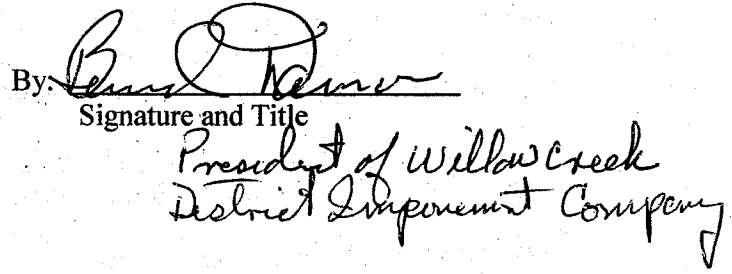 By:
Signature and Title
President of Willow Creek
District Improvement Company